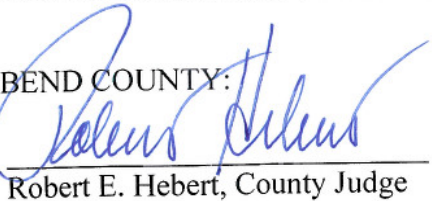 BEND COUNTY:
Robert Hebert
Robert E. Hebert, County Judge